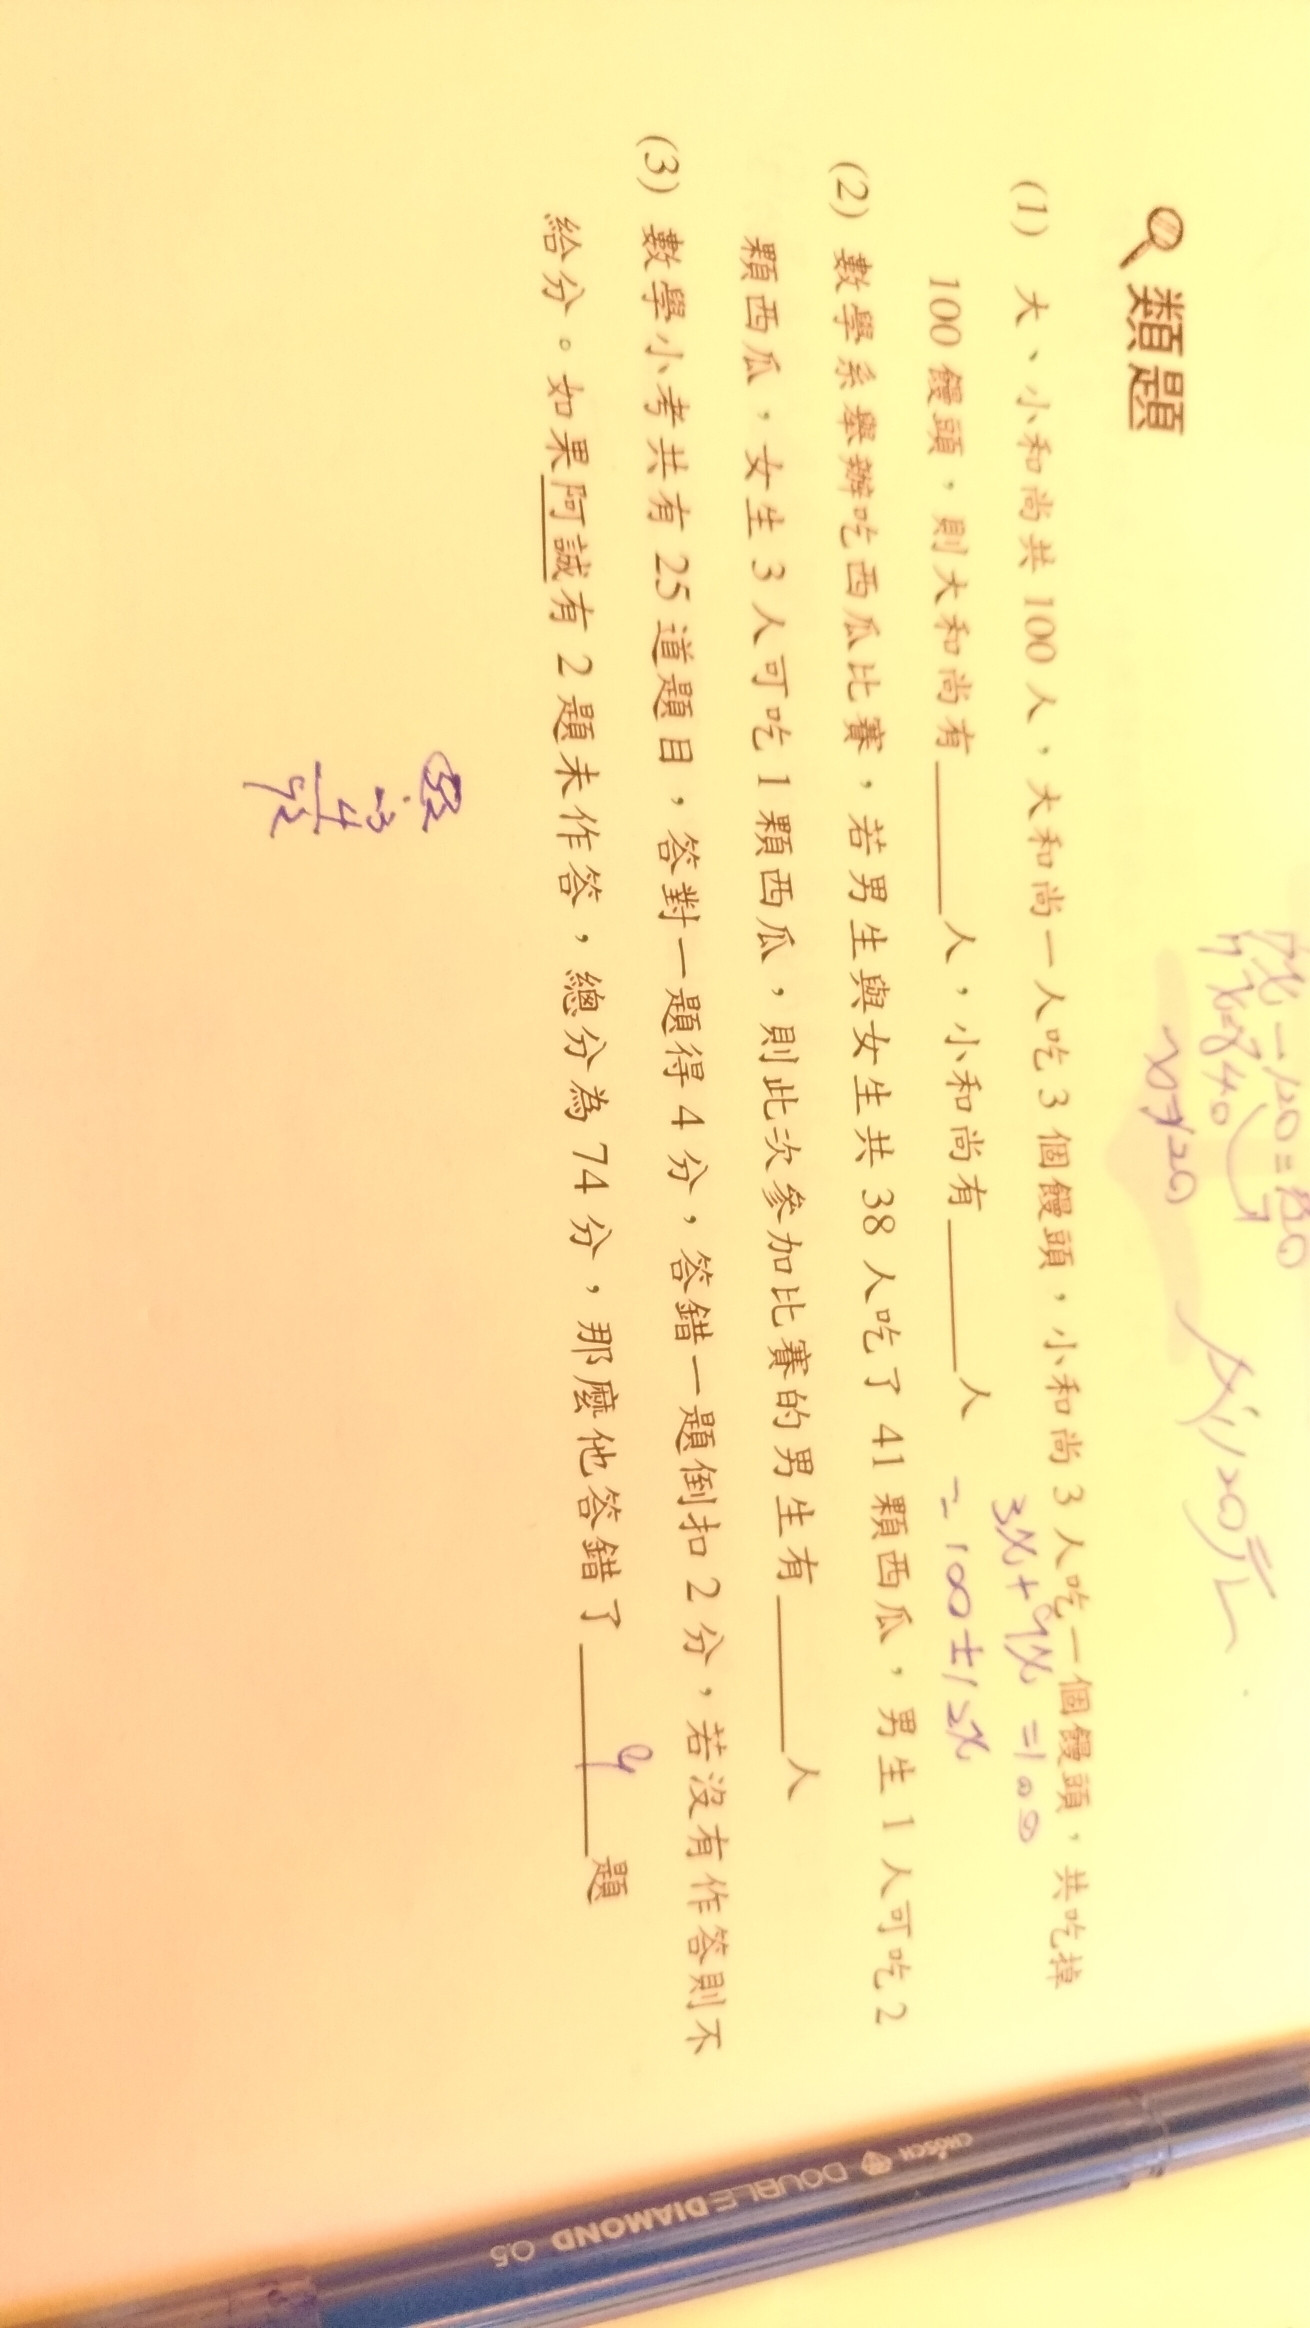 類題
(1) 大、小和尚共 100 人，大和尚一人吃 3 個饅頭，小和尚 3 人吃一個饅頭，共吃掉
100 饅頭，則大和尚有______人，小和尚有______人
3x+9x=100
=100±12x
(2) 數學系舉辦吃西瓜比賽，若男生與女生共 38 人吃了 41 顆西瓜，男生 1 人可吃 2
顆西瓜，女生 3 人可吃 1 顆西瓜，則此次參加比賽的男生有______人
(3) 數學小考共有 25 道題目，答對一題得 4 分，答錯一題倒扣 2 分，若沒有作答則不
給分。如果阿誠有 2 題未作答，總分為 74 分，那麼他答錯了______題
CROSCH DOUBLE DIAMOND 0.5